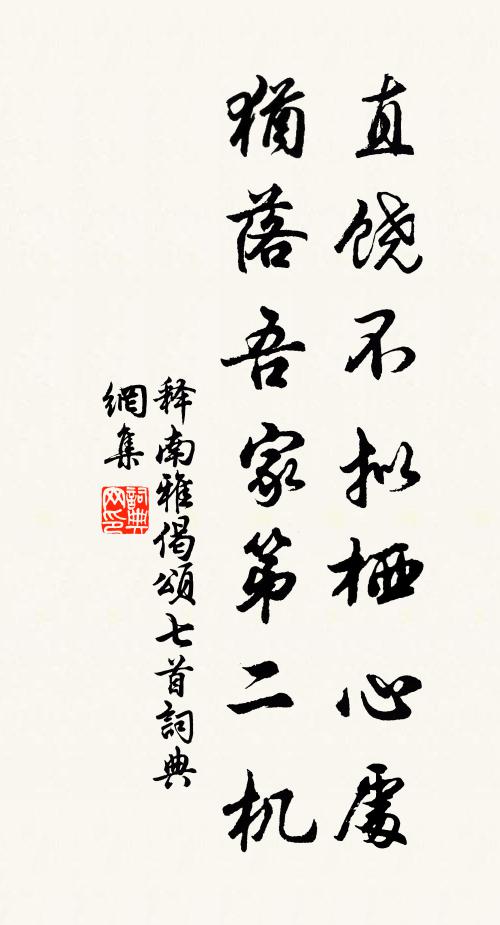 直饶不拟栖心处
犹落吾家第二机
释南雅偈颂七首詞典
網集
詞典
网印